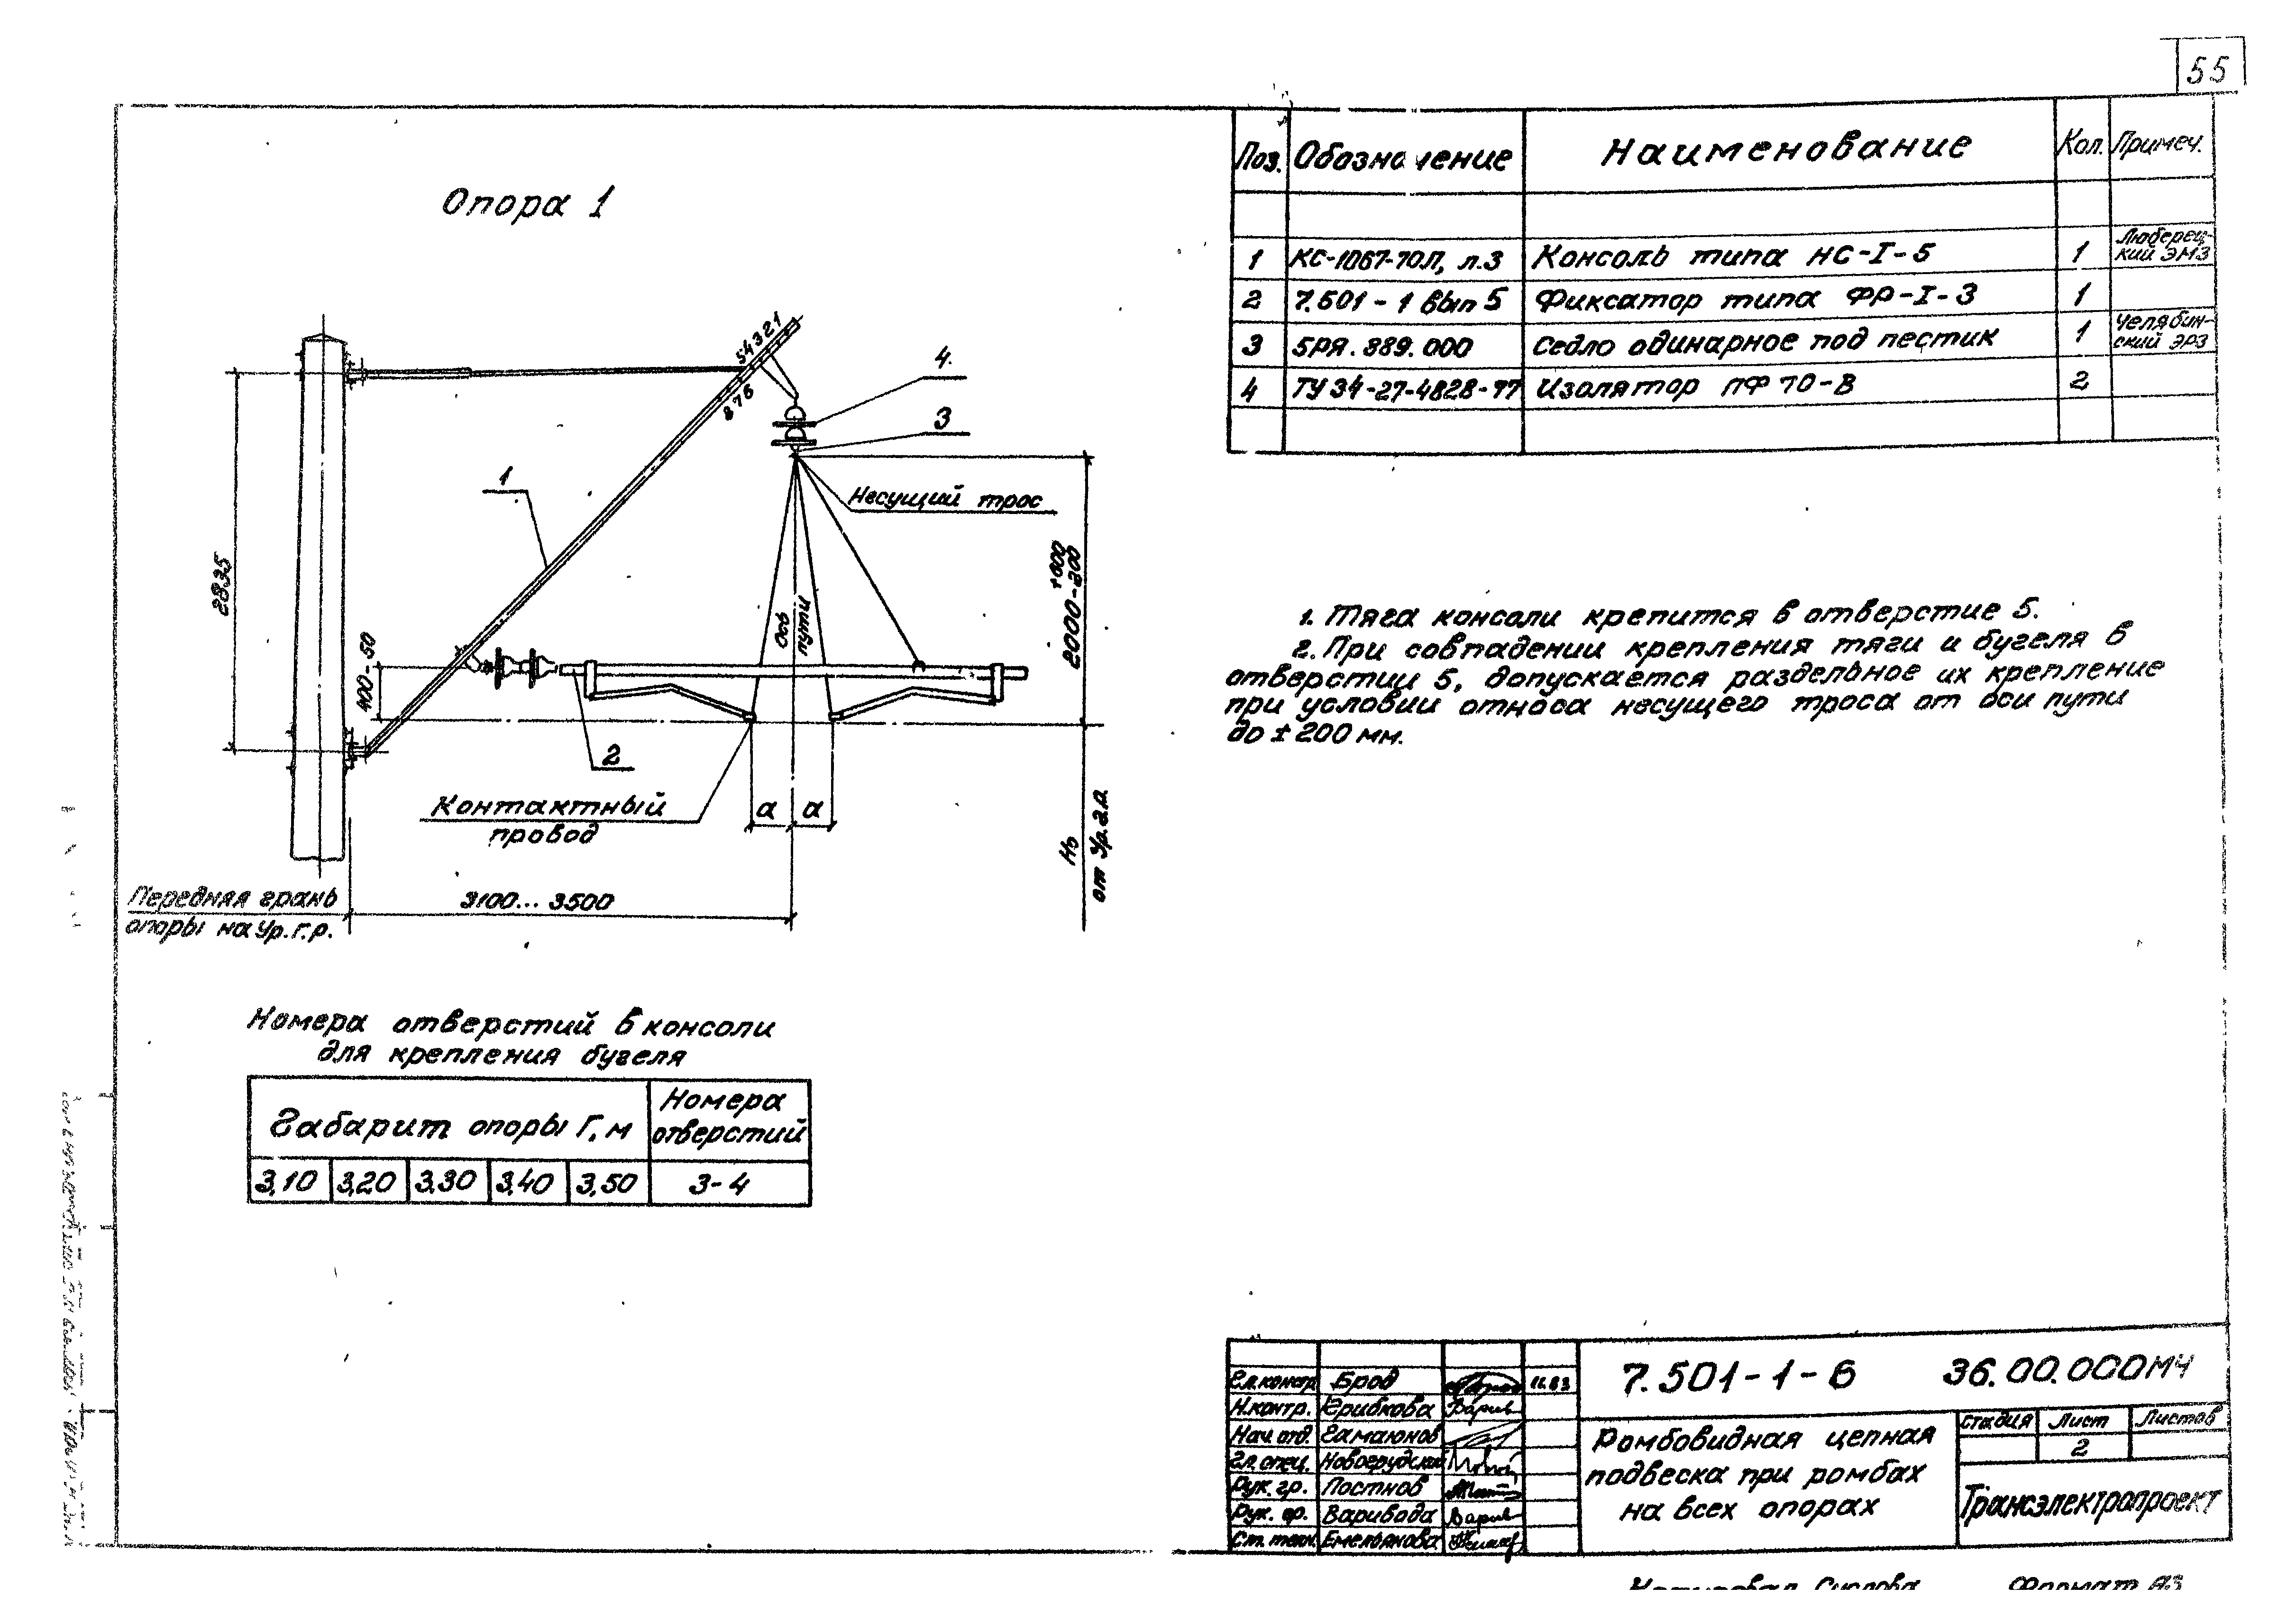 55
Опора 1
Поз. Обозначение Наименование Кол. Примеч.
1 КС-1067-70П, л.3 Консоль типа НС-I-5 1 Люберец-
кий ЭМЗ
2 7.501-1 вып 5 Фиксатор типа ФР-I-3 1
3 5РЯ.889.000 Седло одинарное под пестик 1 Челябин-
ский ЭРЗ
4 ТУ34-27-4828-77 Изолятор ПФ70-В 2
54321
876
4
3
1
Несущий трос
2835
400-50
Ось
пути
+600
2000-200
2
Контактный
провод
а а
от Ур.г.р.
Передняя грань
опоры на Ур.г.р.
3100...3500
1. Тяга консоли крепится в отверстие 5.
2. При совпадении крепления тяги и бугеля в
отверстии 5, допускается раздельное их крепление
при условии относа несущего троса от оси пути
до ± 200 мм.
Номера отверстий в консоли
для крепления бугеля
Габарит опоры Г, м Номера
отверстий
3,10 3,20 3,30 3,40 3,50 3-4
Гл.констр Брод 11.83
Н.контр. Грибкова
Нач.отд. Гамаюнов
Гл.спец. Новогрудский
Рук.гр. Постнов
Рук.гр. Варивода
Ст.техн. Емельянова
7.501-1-6 36.00.000МЧ
Ромбовидная цепная
подвеска при ромбах
на всех опорах
Стадия Лист Листов
2
Трансэлектропроект
Копировал Суслова Формат А3